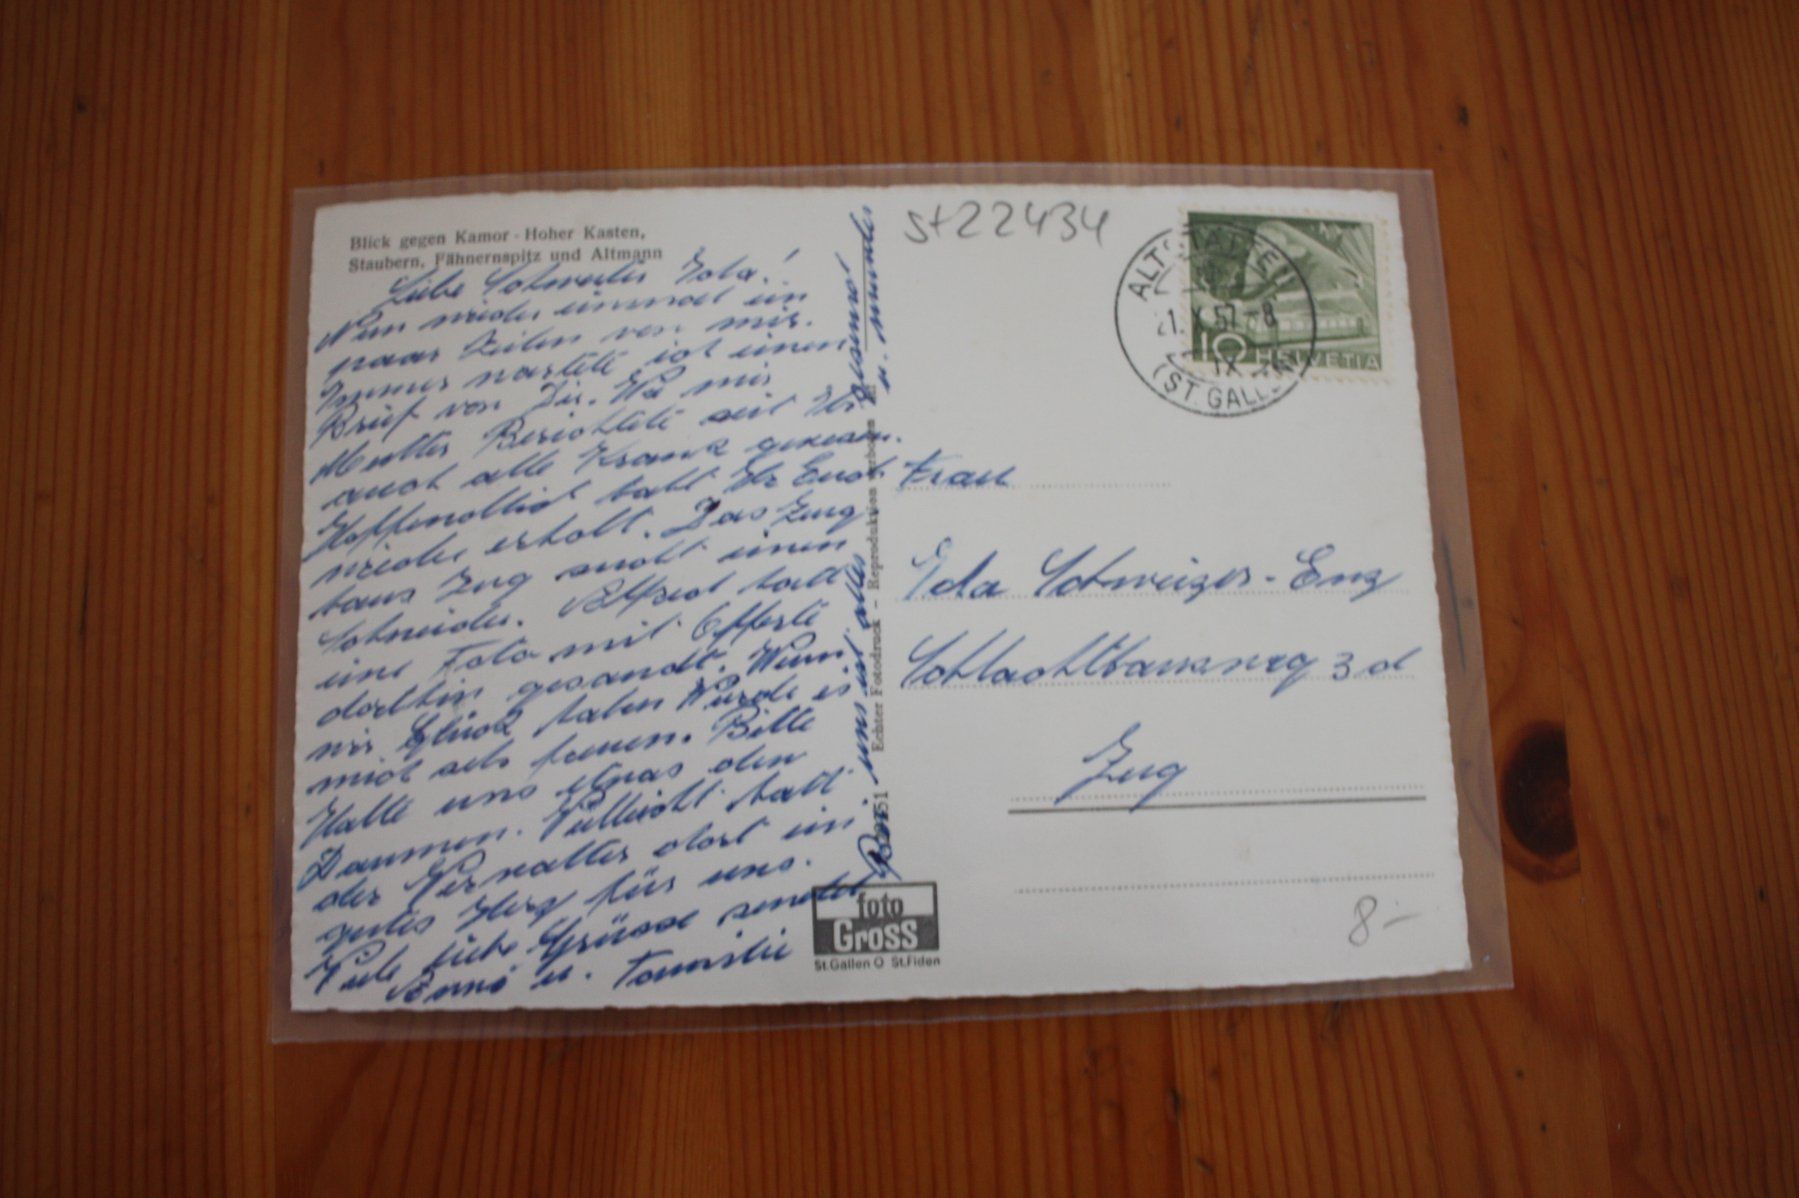 Blick gegen Kamor - Hoher Kasten,
Staubern, Fähnernspitz und Altmann
Liebe Schwester Ida!
Nun wieder einmal ein
paar Zeilen von mir.
Immer wartete ich einen
Brief von Dir. Wie mir
Mutter Berichtete seit Ihr
auch alle Krank gewesen.
Hoffendlich habt Ihr Euch
wieder erholt. Das Zeug
haus Zug sucht einen
Schneider. Alfred hatt
eine Foto mit Offerte
dorthin gesandt. Wenn
wir Glück haben Würde es
mich sehr freuen. Bitte
Halte uns etwas den
Daumen. Vielleicht hatt
der Verwalter dort ein
gutes Herz für uns.
Viele liebe Grüsse sendet
u. Familie
Bei uns ist alles gesund
u. munter
Echter Fotodruck – Reproduktion verboten
foto
Gross
St.Gallen O St.Fiden
st22434
ALTSTÄTTEN
21.X.57-8
(ST. GALLEN)
10 HELVETIA
Frau
Ida Schweizer-Enz
Schlachthausweg 3d
Zug
8.-